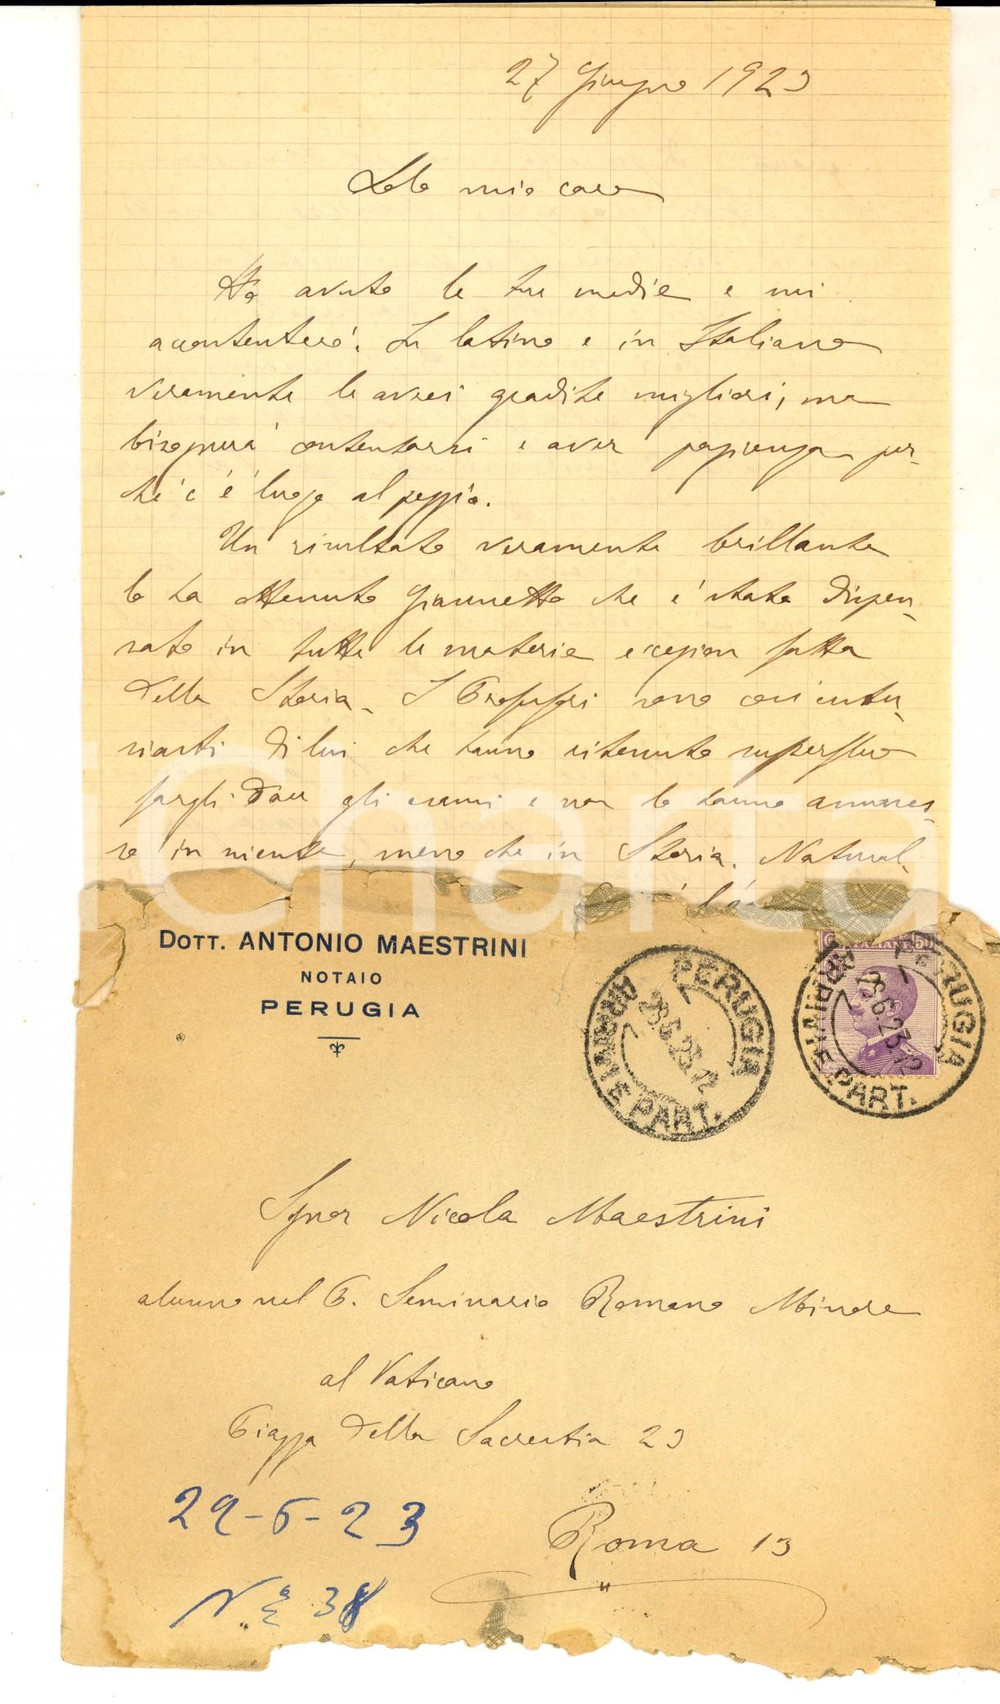 27 Giugno 1923
Lolo mio caro
Ho avuto le tue medie e mi
accontenterò. In latino e in Italiano
veramente le avrei gradite migliori, ma
bisognerà contentarsi e aver pazienza per-
chè c'è luogo al peggio.
Un risultato veramente brillante
lo ha ottenuto Giannetto che è stato dispen-
sato in tutte le materie eccezion fatta
della Storia. I Professori sono così entu-
siasti di lui che hanno ritenuto superfluo
fargli dare gli esami e non lo hanno ammes-
so in niente, meno che in Storia. Natural-
DOTT. ANTONIO MAESTRINI
NOTAIO
PERUGIA
PERUGIA
ARRIVI E PART.
28.6.23.12
PERUGIA
ARRIVI E PART.
28.6.23.12
Signor Nicola Maestrini
alunno nel P. Seminario Romano Minore
al Vaticano
Piazza della Sacrestia 23
Roma 13
29-6-23
N° 38